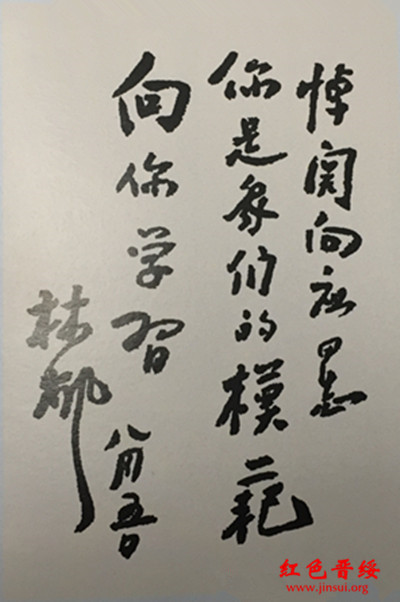 悼関向应同志
你是我们的模范
向你学习
八月五日
林枫
红色晋绥
www.jinsui.org